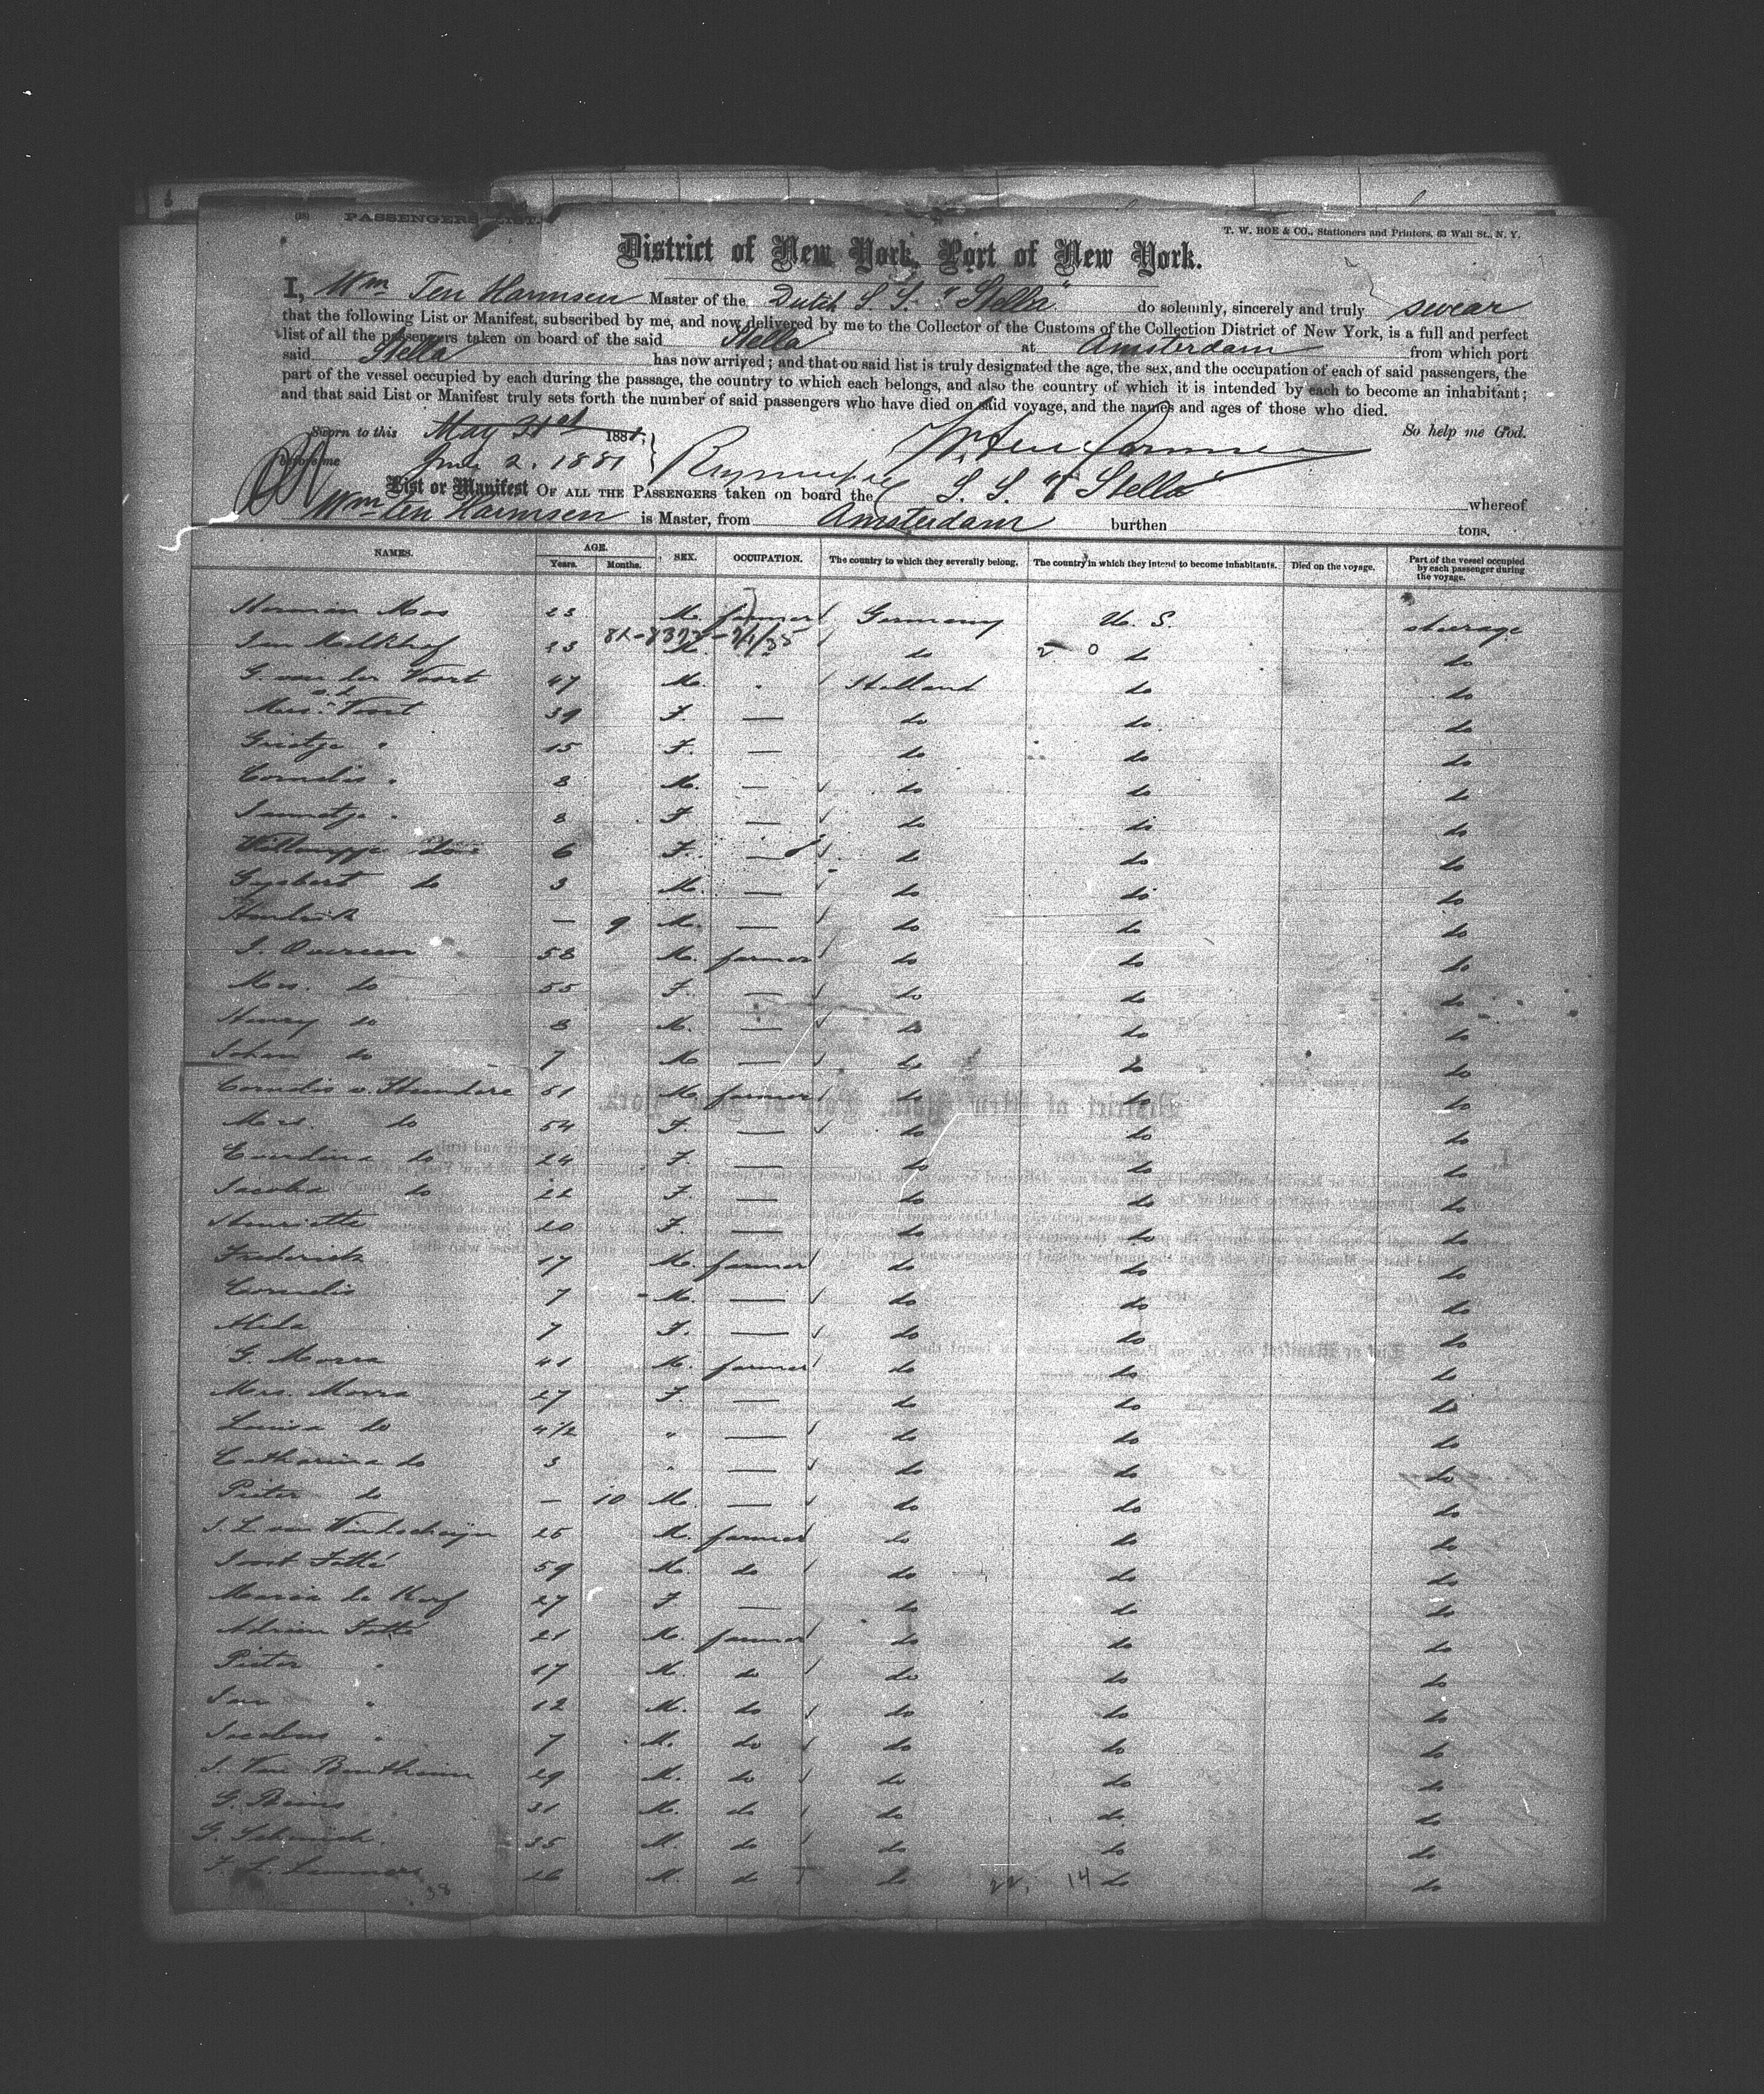 PASSENGERS LIST.
T. W. ROE & CO., Stationers and Printers, 63 Wall St., N. Y.
District of New York, Port of New York.
I, Wm Ten Harmsen Master of the Dutch S. S. "Stella" do solemnly, sincerely and truly swear
that the following List or Manifest, subscribed by me, and now delivered by me to the Collector of the Customs of the Collection District of New York, is a full and perfect
list of all the passengers taken on board of the said Stella at Amsterdam from which port
said Stella has now arrived; and that on said list is truly designated the age, the sex, and the occupation of each of said passengers, the
part of the vessel occupied by each during the passage, the country to which each belongs, and also the country of which it is intended by each to become an inhabitant;
and that said List or Manifest truly sets forth the number of said passengers who have died on said voyage, and the names and ages of those who died.
Sworn to this May 31st 1881. So help me God.
before me June 2. 1881
List or Manifest OF ALL THE PASSENGERS taken on board the S. S. "Stella" whereof
Wm Ten Harmsen is Master, from Amsterdam burthen tons.
NAMES. AGE. Years. Months. SEX. OCCUPATION. The country to which they severally belong. The country in which they intend to become inhabitants. Died on the voyage. Part of the vessel occupied by each passenger during the voyage.
Herman Mos 23 M. farmer Germany U. S. steerage
Jan 23 M. do do do
G. van der Voort 47 M. Holland do do
Mrs. v. d. Voort 39 F. — do do do
Grietje " 15 F. — do do do
Cornelis " 8 M. — do do do
Jannetje " 8 F — do do do
6 F. — do do do
Gysbert do 3 M. — do do do
Hendrik — 9 M. — do do do
J. 58 M. farmer do do do
Mrs. do 55 F. — do do do
Henry do 8 M. — do do do
Johan do 7 M — do do do
Cornelis v. 51 M. farmer do do do
Mrs. do 54 F. — do do do
do 24 F. — do do do
Jacoba do 22 F. — do do do
Henriette 20 F. — do do do
Frederick 17 M. farmer do do do
Cornelis 7 M. — do do do
Alida 7 F. — do do do
G. Morra 41 M. farmer do do do
Mrs. Morra 27 F. — do do do
Louisa do 4 1/2 " — do do do
Catharina do 3 " — do do do
Pieter do — 10 M. — do do do
J. L. van 25 M. farmer do do do
Joost Fatté 59 M. do do do do
Maria de 27 F — do do do
Adrien Fatté 21 M. farmer do do do
Pieter " 17 M. do do do do
Jan " 12 M. do do do do
Jacobus " 7 M. do do do do
J. Van Bentheim 29 M. do do do do
G. 31 M. do do do do
G. 35 M. do do do do
26 M. do do 14 do do